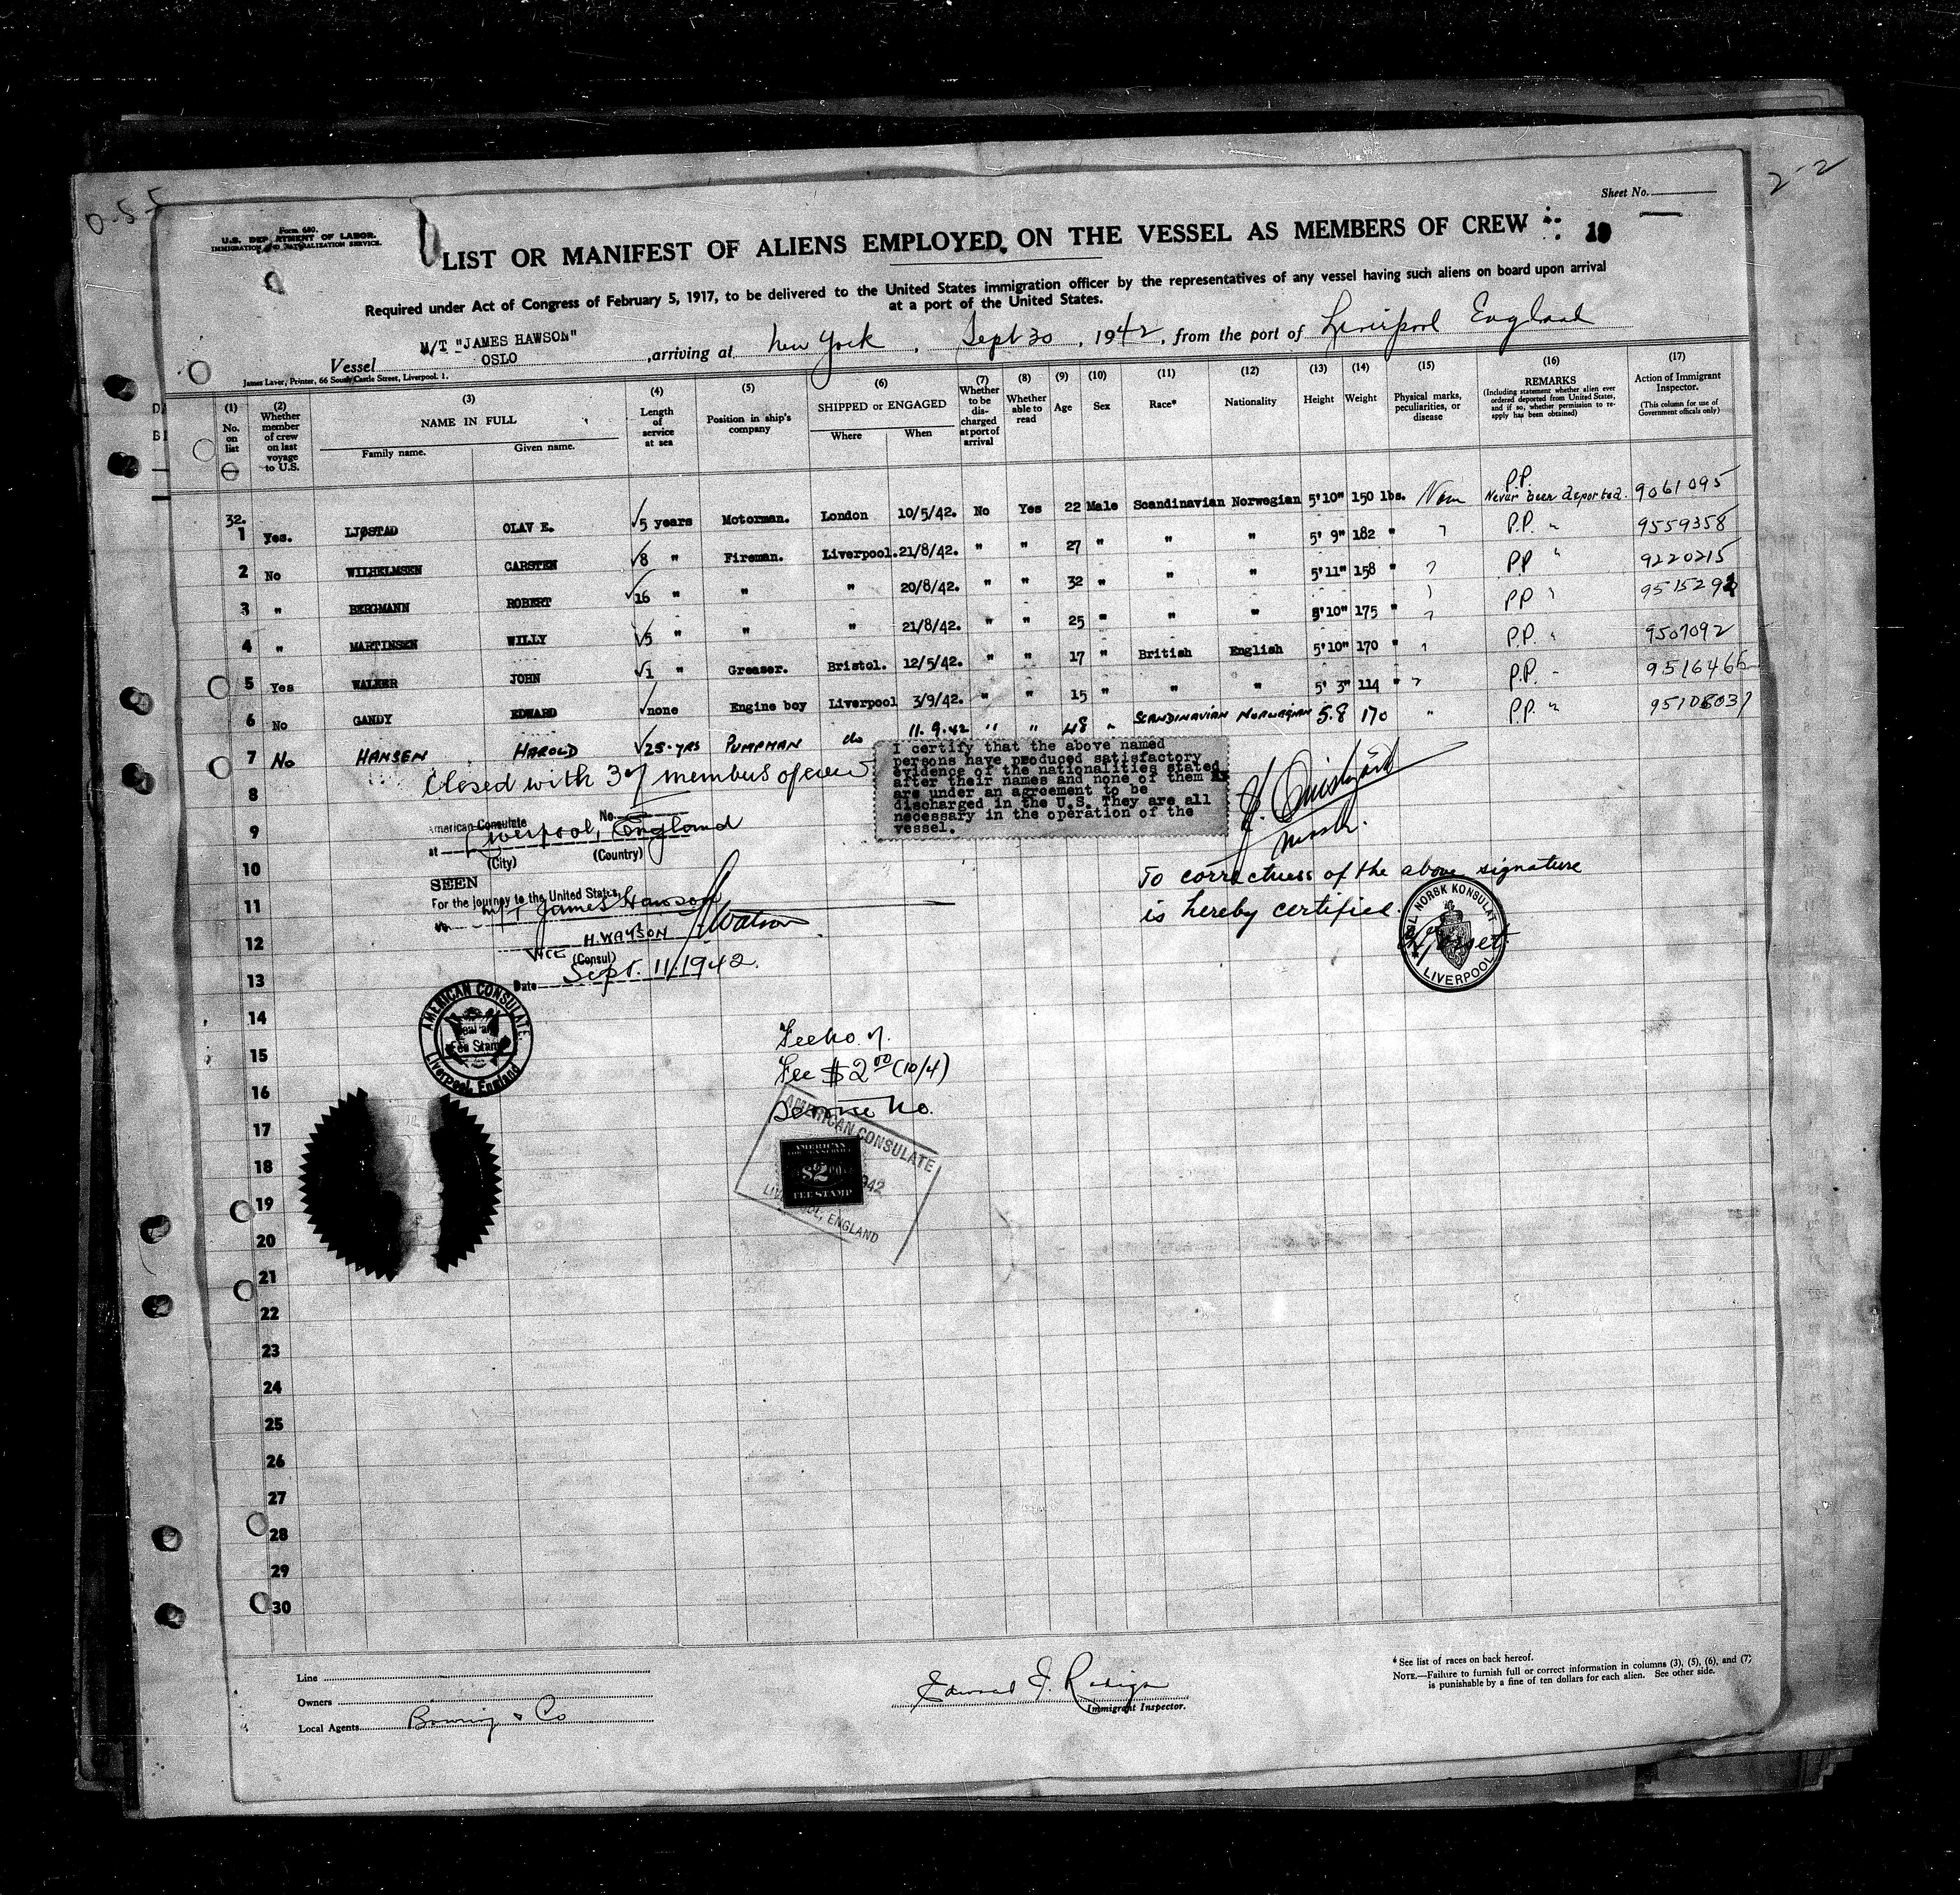 0-5-5
2-2
Sheet No.
Form 680.
U.S. DEPARTMENT OF LABOR.
IMMIGRATION AND NATURALIZATION SERVICE.
LIST OR MANIFEST OF ALIENS EMPLOYED ON THE VESSEL AS MEMBERS OF CREW 10
Required under Act of Congress of February 5, 1917, to be delivered to the United States immigration officer by the representatives of any vessel having such aliens on board upon arrival
at a port of the United States.
Vessel M/T "JAMES HAWSON" OSLO, arriving at New York, Sept 30, 1942, from the port of Liverpool England
James Laver, Printer, 66 South Castle Street, Liverpool. 1.
(1) No. on list
(2) Whether member of crew on last voyage to U.S.
(3) NAME IN FULL Family name. Given name.
(4) Length of service at sea
(5) Position in ship's company
(6) SHIPPED or ENGAGED Where When
(7) Whether to be discharged at port of arrival
(8) Whether able to read
(9) Age
(10) Sex
(11) Race*
(12) Nationality
(13) Height
(14) Weight
(15) Physical marks, peculiarities, or disease
(16) REMARKS (Including statement whether alien ever ordered deported from United States, and if so, whether permission to re-apply has been obtained)
(17) Action of Immigrant Inspector. (This column for use of Government officials only)
32.
1 Yes. LJØSTAD OLAV E. √5 years Motorman. London 10/5/42. No Yes 22 Male Scandinavian Norwegian 5'10" 150 lbs. P.P. Never been deported. 9061095
2 No WILHELMSEN CARSTEN √8 " Fireman. Liverpool. 21/8/42. " " 27 " " " 5' 9" 182 " P.P. " 9559358
3 " BERGMANN ROBERT √16 " " " 20/8/42. " " 32 " " " 5'11" 158 " PP " 9220215
4 " MARTINSEN WILLY √5 " " " 21/8/42. " " 25 " " " 5'10" 175 " PP "
5 Yes WALKER JOHN √1 " Greaser. Bristol. 12/5/42. " " 17 " British English 5'10" 170 " P.P. " 9507092
6 No GANDY EDWARD √none Engine boy Liverpool 3/9/42. " " 15 " " " 5' 3" 114 " P.P. "
7 No HANSEN HAROLD √25-YRS PUMPMAN do 11.9.42 " " 48 " SCANDINAVIAN NORWEGIAN 5.8 170 " P.P. "
Closed with 37 members of crew
I certify that the above named
persons have produced satisfactory
evidence of the nationalities stated
after their names and none of them
are under an agreement to be
discharged in the U.S. They are all
necessary in the operation of the
vessel.
Master.
8
9
10
11
12
13
14
15
16
17
18
19
20
21
22
23
24
25
26
27
28
29
30
American Consulate No.
at Liverpool, England
(City) (Country)
SEEN
For the journey to the United States,
on M/T James Hawson
H. WATSON H Watson
VICE (Consul)
Date Sept. 11, 1942.
To correctness of the above signature
is hereby certified.
KGL NORSK KONSULAT
LIVERPOOL
AMERICAN CONSULATE
Seal and
Fee Stamp
Liverpool, England
Fee $2.00 (10/4)
Service No.
AMERICAN CONSULATE
LIVERPOOL, ENGLAND
AMERICAN
FOREIGN SERVICE
$2.00
FEE STAMP
Line
Owners
Local Agents Bowring & Co
Immigrant Inspector.
* See list of races on back hereof.
NOTE.—Failure to furnish full or correct information in columns (3), (5), (6), and (7)
is punishable by a fine of ten dollars for each alien. See other side.